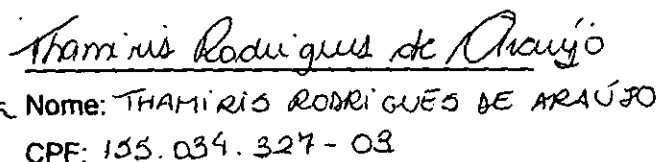 Thamiris Rodrigues de Araújo
Nome: THAMIRIS RODRIGUES DE ARAÚJO
CPF: 155.034.327-03